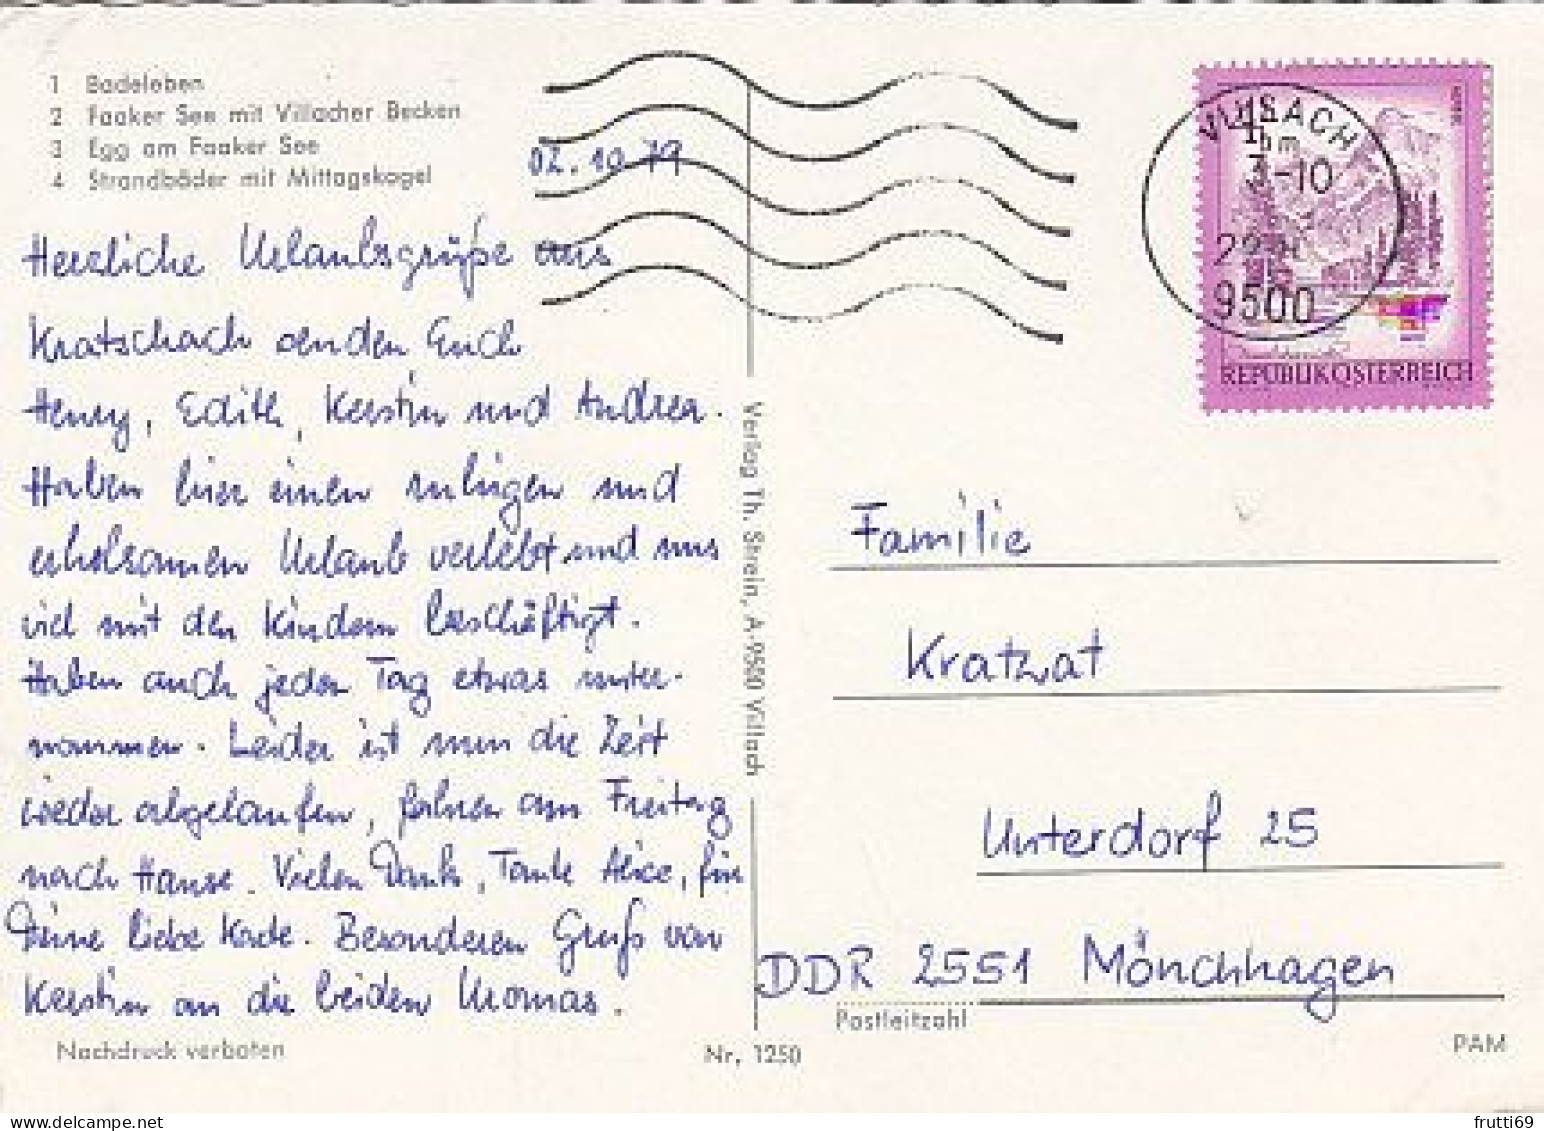 1 Badeleben
2 Faaker See mit Villacher Becken
3 Egg am Faaker See
4 Strandbäder mit Mittagskogel
02.10.79
Herzliche Urlaubsgrüße aus
Kratschach senden Euch
Henry, Edith, Kerstin und Andrea.
Haben hier einen ruhigen und
erholsamen Urlaub verlebt und uns
viel mit den Kindern beschäftigt.
Haben auch jeden Tag etwas unter-
nommen. Leider ist nun die Zeit
wieder abgelaufen, fahren am Freitag
nach Hause. Vielen Dank, Tante Alice, für
Deine liebe Karte. Besonderen Gruß von
Kerstin an die beiden Uromas.
Nachdruck verboten
Verlag Th. Strein, A-9500 Villach
Nr. 1250
VILLACH
-10
9500
REPUBLIK ÖSTERREICH
Familie
Kratzat
Unterdorf 25
DDR 2551 Mönchhagen
Postleitzahl
PAM
frutti69